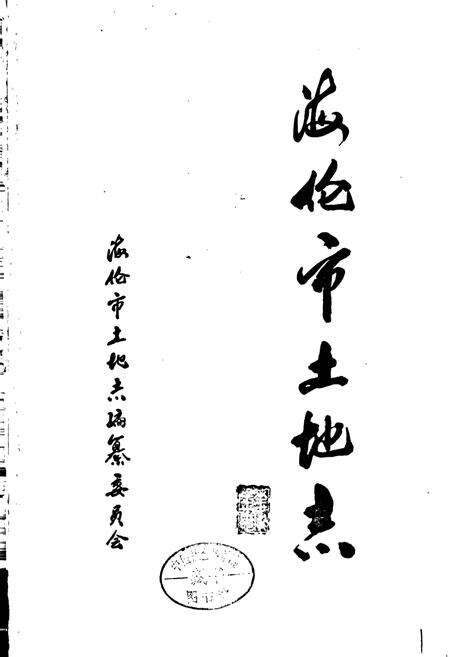 海伦市土地志
海伦市土地志编纂委员会